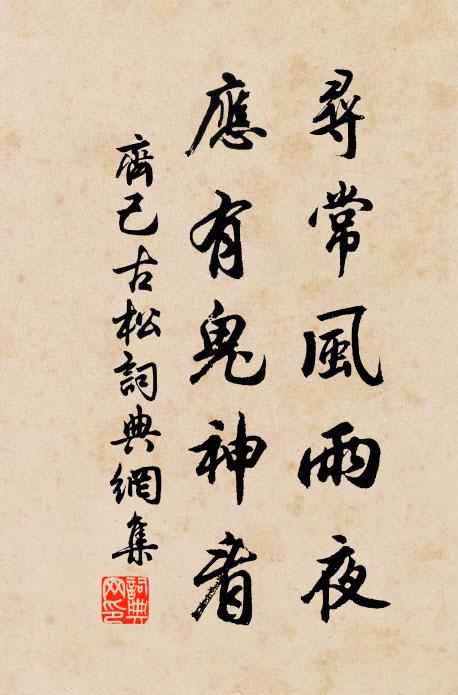 尋常風雨夜
應有鬼神看
齊己古松詞典網集
詞典網印